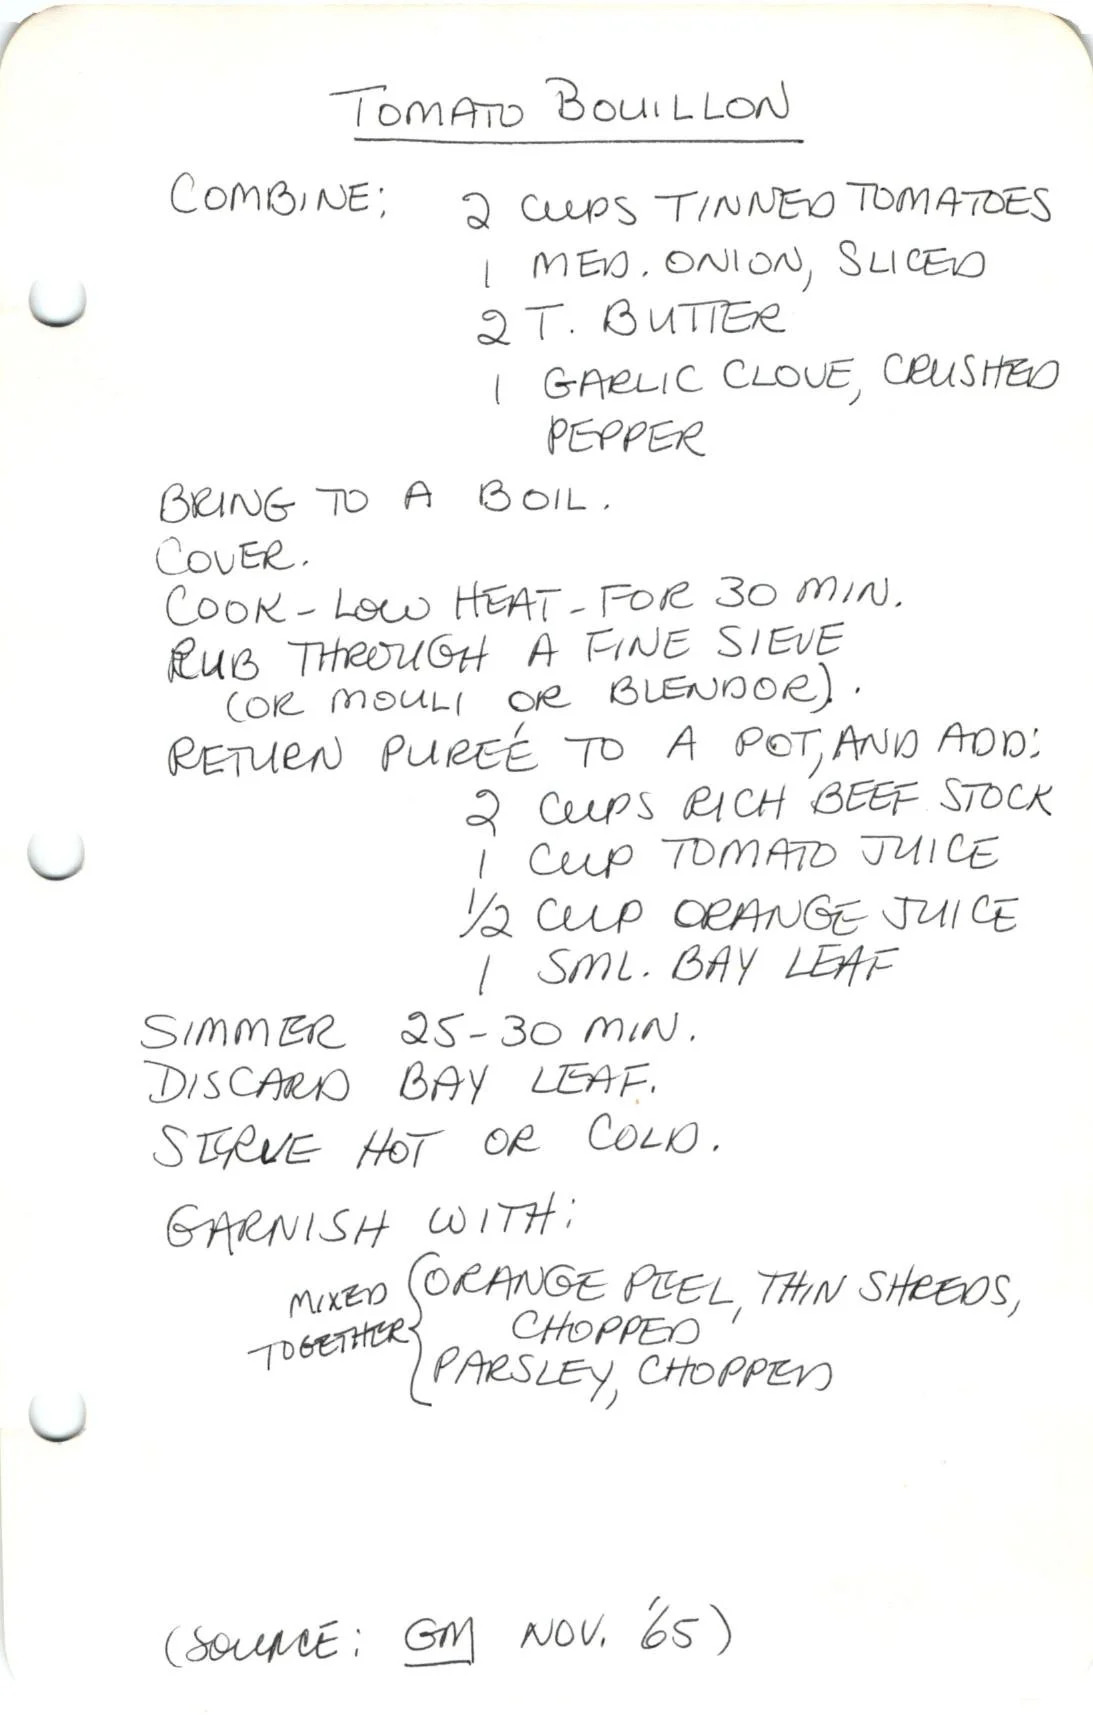 TOMATO BOUILLON
COMBINE: 2 CUPS TINNED TOMATOES
1 MED. ONION, SLICED
2 T. BUTTER
1 GARLIC CLOVE, CRUSHED
PEPPER
BRING TO A BOIL.
COVER.
COOK - LOW HEAT - FOR 30 MIN.
RUB THROUGH A FINE SIEVE
(OR MOULI OR BLENDOR).
RETURN PURÉE TO A POT, AND ADD:
2 CUPS RICH BEEF STOCK
1 CUP TOMATO JUICE
1/2 CUP ORANGE JUICE
1 SML. BAY LEAF
SIMMER 25-30 MIN.
DISCARD BAY LEAF.
SERVE HOT OR COLD.
GARNISH WITH:
MIXED TOGETHER { ORANGE PEEL, THIN SHREDS,
CHOPPED
PARSLEY, CHOPPED
(SOURCE: GM NOV. '65)